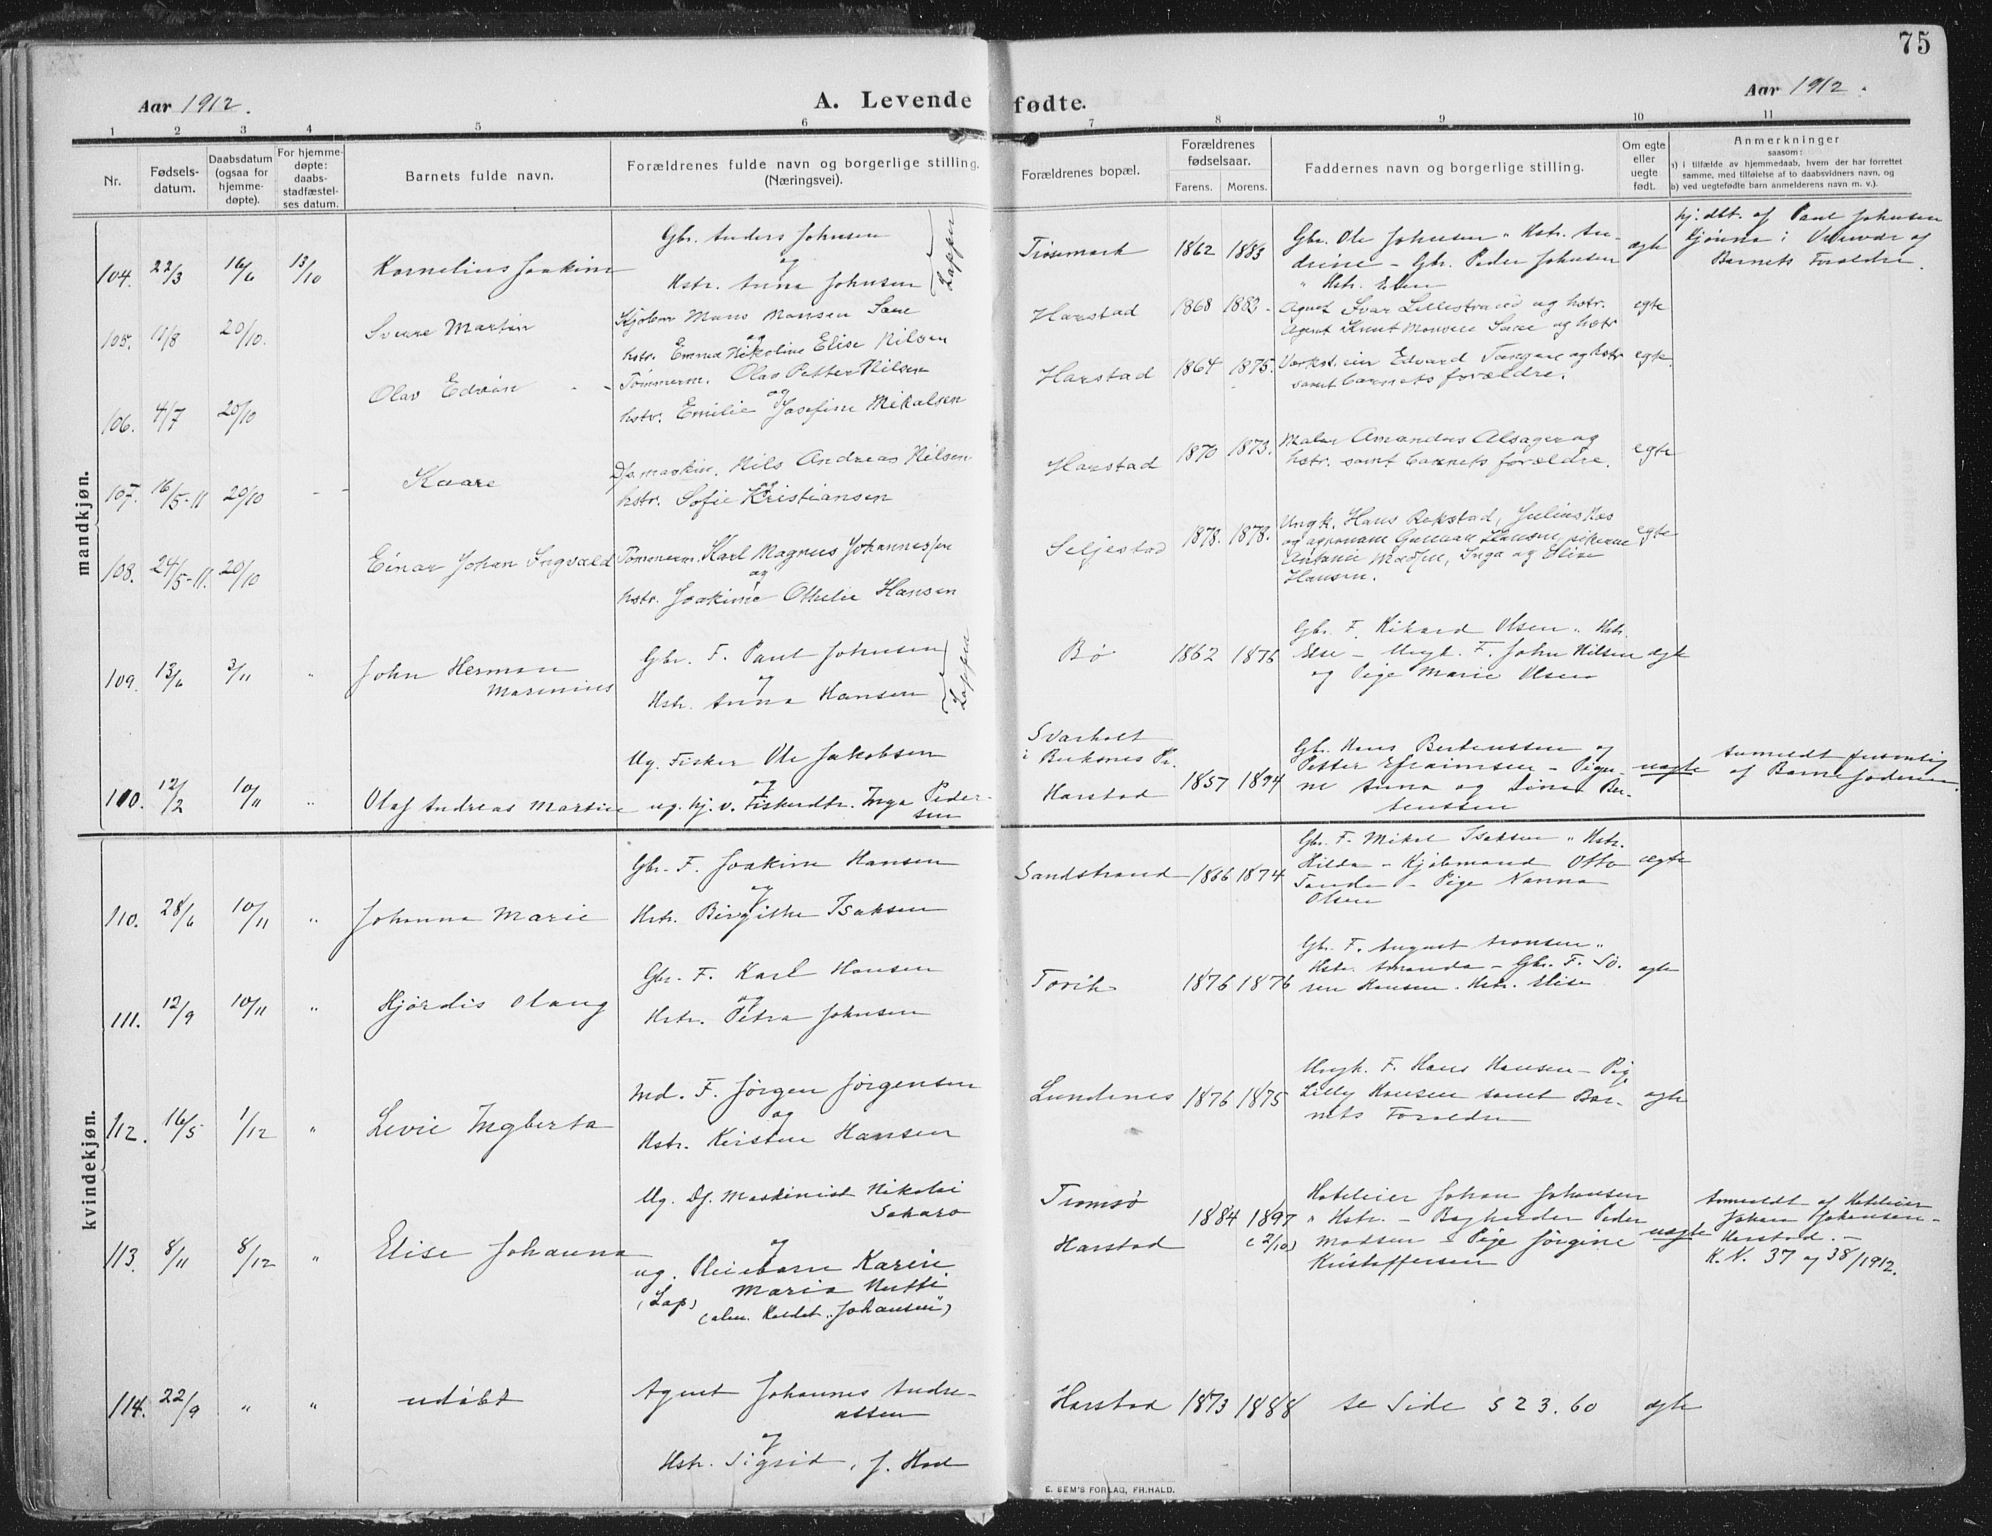 75
Aar 1912.
A. Levende fødte.
Aar 1912.
1 2 3 4 5 6 7 8 9 10 11
Nr.
Fødsels-
datum.
Daabsdatum
(ogsaa for
hjemme-
døpte).
For hjemme-
døpte:
daabs-
stadfæstel-
ses datum.
Barnets fulde navn.
Forældrenes fulde navn og borgerlige stilling.
(Næringsvei).
Forældrenes bopæl.
Forældrenes
fødselsaar.
Farens. Morens.
Faddernes navn og borgerlige stilling.
Om egte
eller
uegte
født.
Anmerkninger
saasom:
a) i tilfælde av hjemmedaab, hvem der har forrettet
samme, med tilføielse af to daabsvidners navn, og
b) ved uegtefødte barn anmelderens navn m. v.).
mandkjøn.
104. 22/3 16/6 13/10 Kornelius Joakim
Gbr. Anders Johnsen
og
Hstr. Anna Johnsen
Lapper
Trøsemark 1862 1883
Gbr. Ole Johnsen " Hstr. An-
drine - Gbr. Peder Johnsen
" Hstr. Elen
ægte
hj. dbt. af Paul Johnsen
i og
Barnets Forældre.
105. 11/8 20/10. Sverre Martin
Kjøbm Mons Monsen Sære
og
hstr. Emma Nikoline Elise Nilsen
Harstad 1868 1882.
Agent Ivar Lillestrand og hstr.
Agent Knut Monsen Sære og hstr
egte
106. 4/7 20/10 Olav Edvin
Tømmerm. Olav Petter Nilsen
og
hstr. Emilie Josefine Mikalsen
Harstad 1864 1875.
Verkst.eier Edvard Tangen og hstr
samt barnets forældre.
egte.
107. 16/5-11 20/10 -- Kaare
Ds.maskin. Nils Andreas Nilsen
og
hstr. Sofie Kristiansen
Harstad 1870 1873.
Maler Amandus Alsager og
hstr. samt barnets forældre.
egte
108. 24/5-11. 20/10 Einar Johan Ingvald
Tømmerm. Karl Magnus Johannessen
og
hstr. Joakime Othelie Hansen
Seljestad 1878. 1878.
Ungk. Hans Rokstad, Julius Næs
og agronom Gunnar Hansen, pikerne
Antonie Madsen, Inga og Elise
Hansen.
egte
109. 13/6 3/11 " John Herman
Marenius
Gbr. F. Paul Johnsen
og
Hstr. Anna Hansen
Lapper
Bø 1862 1876
Gbr. F. Rikard Olsen " Hstr.
Else - Ungk. F. John Nilsen
og Pige Marie Olsen
ægte
110. 12/2 10/11 " Olaf Andreas Martin
Ug. Fisker Ole Jakobsen
og
ug. hj. v. Fiskerdtr. Inga Peder-
sen
Svarholt
i Pr.
Harstad 1857 1894
Gbr. Hans Berteussen og
Petter Efraimsen - Piger-
ne Anna og Lina Ber-
teussen
uægte
Anmeldt personlig
af Barnefaderen.
kvindekjøn.
110. 28/6 10/11 " Johanna Marie
Gbr. F. Joakim Hansen
og
Hstr. Birgithe Isaksen
Sandstrand 1866 1874
Gbr. F. Mikel Isaksen " Hstr.
Hilda - Kjøbmand Otto
Tande - Pige Nanna
Olsen
ægte
111. 12/9 10/11 " Hjørdis Olaug
Gbr. F. Karl Hansen
og
Hstr. Petra Johnsen
Tovik 1876 1876
Gbr. F. August Aronsen "
Hstr. Amanda - Gbr. F. Sø-
ren Hansen. Hstr. Elise
ægte
112. 16/5 1/12 " Levie Ingberta
Md. F. Jørgen Jørgensen
og
Hstr. Kirsten Hansen
Lundenes 1876 1875
Ungk. F. Hans Hansen - Pige
Lilly Hansen samt Bar-
nets Forældre
ægte
113. 8/11 8/12 " Elise Johanna
Ug. Ds. Maskinist Nikolai
og
ug. Pleiebarn Karin
(Lap) Maria Nutti
(alm. kaldet "Johansen")
Tromsø
Harstad 1884 1897
(2/10)
Hoteleier Johan Johansen
" Hstr. - Bagholder Peder
Madsen - Pige Jørgine
Kristoffersen
uægte
Anmeldt af Hoteleier
Johan Johansen -
Harstad. -
K. N. 37 og 38/1912.
114. 22/9 " " udøbt
Agent Johannes Andre-
assen
og
Hstr. Sigrid, f.
Harstad 1873 1888 se Side 523.60 ægte
E. SEM'S FORLAG, FH.HALD.